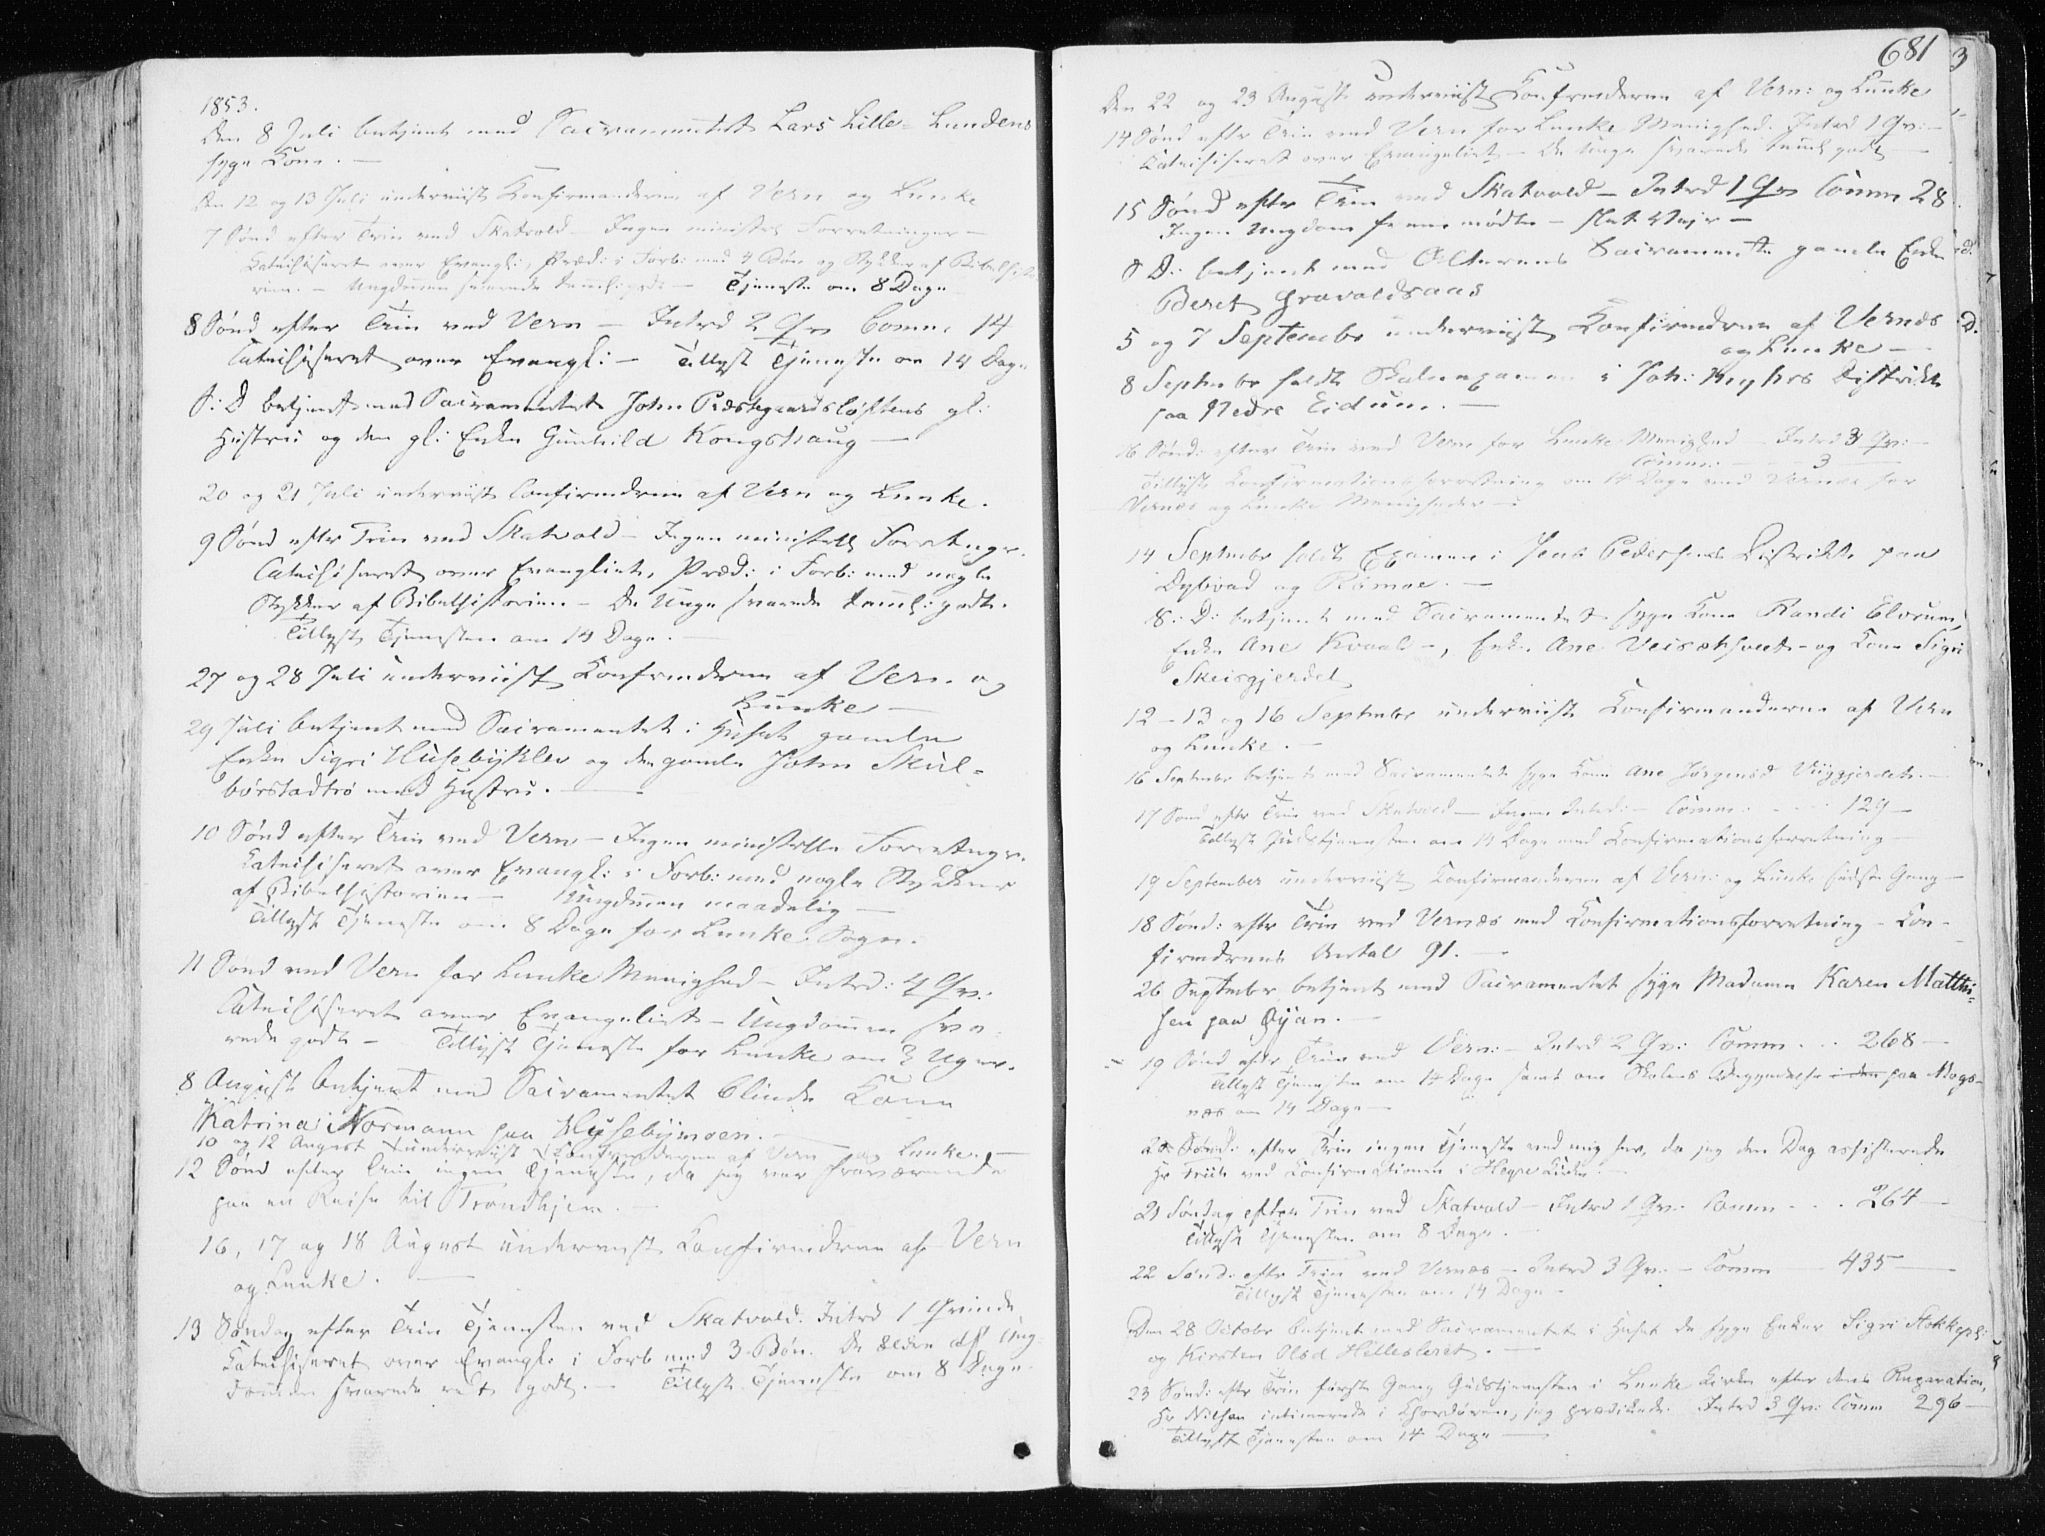 1853.
Den 8 Juli betjent med Sacramentet Lars Lille-Lundens
syge Kone. —
Den 12 og 13 Juli underviist Konfirmanderne af Vern og Lunke
7 Sønd efter Trin ved Skatvold — Ingen minister Forretninger —
Catechiseret over Evangl:, Præd: i Forb: med 4 Bøn og Stykker af Bibelhisto
rien. — Ungdommen svarede temmel: godt — Tjeneste om 8 Dage
8 Sønd efter Trin ved Vern — Introd 2 Qv Comm. 14
Catechiseret over Evangl: — Tillyst Tjeneste om 14 Dage
S: D betjent med Sacramentet John Præstegaardsløftens gl:
Hustru og den gl: Enke Gunhild Kongshaug —
20 og 21 Juli underviist Confirmdrne af Vern og Lunke.
9 Sønd efter Trin ved Skatvold — Ingen ministell Forretngr.
Catechiseret over Evangliet, Præd: i Forb: med nogle
Stykker af Bibelhistorien — De Unge svarede temml: godt.
Tillyst Tjenesten om 14 Dage. —
27 og 28 Juli underviist Konfirmdrene af Vern. og
Lunke —
29 Juli betjent med Sacramentet i Huset gamle
Enke Sigri Husebyklev og den gamle John Skul-
børstadtrø med Hustru. —
10 Sønd efter Trin ved Vern — Ingen ministelle Forretngr.
Catechiseret over Evangl: i Forb: med nogle Stykker
af Bibelhistorien — Ungdmen maadelig —
Tillyst Tjeneste om 8 Dage for Lunke Sogn.
11 Sønd ved Vern for Lunke Menighed — Introd: 4 Qv:
Catechiseret over Evangeliet — Ungdommen sva
rede godt — Tillyst Tjeneste for Lunke om 3 Uger.
8 August betjent med Sacramentet blinde Kone
Katrina Normann paa Husebymoen. —
10 og 12 August underviist Konfirmdrene af Vern og Lunke. —
12 Sønd efter Trin ingen Tjeneste, da jeg var fraværende
paa en Reise til Trondhjem. —
16, 17 og 18 August underviist Konfirmdrene af Vern
og Lunke. —
13 Søndag efter Trin Tjenesten ved Skatvold. Introd 1 Qvinde
Catechiseret over Evangl: i Forb med 3 Bøn. De ældre af Ung-
dommen svarede ret godt. — Tillyst Tjeneste om 8 Dage
681
Den 22 og 23 August underviist Konfirmdrene af Vern: og Lunke
14 Sønd efter Trin ved Vern for Lunke Menighed. Introd 1 Qv: —
Catechiseret over Evangeliet — De Unge svarede temml godt —
15 Sønd efter Trin ved Skatvold — Introd 1 Qv Comm 28
Ingen Ungdom fremmødte — slet Vejr —
S D: betjent med Alterens Sacramente gamle Enke
Beret Gravaldsaas
5 og 7 Septembr underviist Konfirmdrne af Vernæs
og Lunke —
8 Septembr holdt Skoleexamen i Joh: Kyhrs Distrikt
paa Nedre Eidum. —
16 Sønd: efter Trin ved Vern for Lunke Menighed — Introd 3 Qv: —
Comm: — 3 —
Tillyst Konfirmationsforretning om 14 Dage ved Vernæs for
Vernæs og Lunke Menigheder —
14 Septembr holdt Examen i Jens Pedersens Distrikt paa
Dybvad og Rømoe. —
S: D: betjent med Sacramentet syge Kone Randi Elvrum,
Enke Ane Kvaal —, Enke Ane Veisethsvet — og Kone Sigri
Skeisgjerdet
12 — 13 og 16 Septembr underviist Konfirmanderne af Vern
og Lunke. —
16 Septembr betjent med Sacramentet syge Kone Ane Jørgensd Viiggjerdet. —
17 Sønd efter Trin ved Skatvold — Ingen Introd: — Comm: . . . 129 —
Tillyst Gudstjenesten om 14 Dage med Konfirmationsforretning —
19 September underviist Konfirmanderne af Vern: og Lunke sidste Gang —
18 Sønd: efter Trin ved Vernæs med Konfirmationsforretning — Kon-
firmdrenes Antal 91. —
26 Septembr betjent med Sacramentet syge Madame Karen Matthi-
sen paa Øyan. —
19 Sønd efter Trin ved Vern: — Introd 2 Qv: Comm . . . 268 —
Tillyst Tjenesten om 14 Dage samt om Skolens Begyndelse i den paa Mogs-
næs om 14 Dage —
20 Sønd: efter Trin ingen Tjeneste ved mig her, da jeg den Dag assisterede
Hr ved Konfirmationen i Hegre Kirke —
21 Søndag efter Trin ved Skatvold — Introd 1 Qv: Comm . . . 264 —
Tillyst Tjenesten om 8 Dage. —
22 Sønd: efter Trin ved Vernæs — Introd 3 Qv: — Comm — 435 —
Tillyst Tjenesten om 14 Dage —
Den 28 Octobr betjent med Sacramentet i Huset de syge Enker Sigri Stokkepl:
og Kirsten Olsd Hellesleret. —
23 Sønd: efter Trin første Gang Gudstjenesten i Lunke Kirke efter dens Reparation,
Hr Nilsen intimerede i Chordøren, jeg prædikede. Introd 3 Qv: Comm 296 —
Tillyst Tjenesten om 14 Dage —